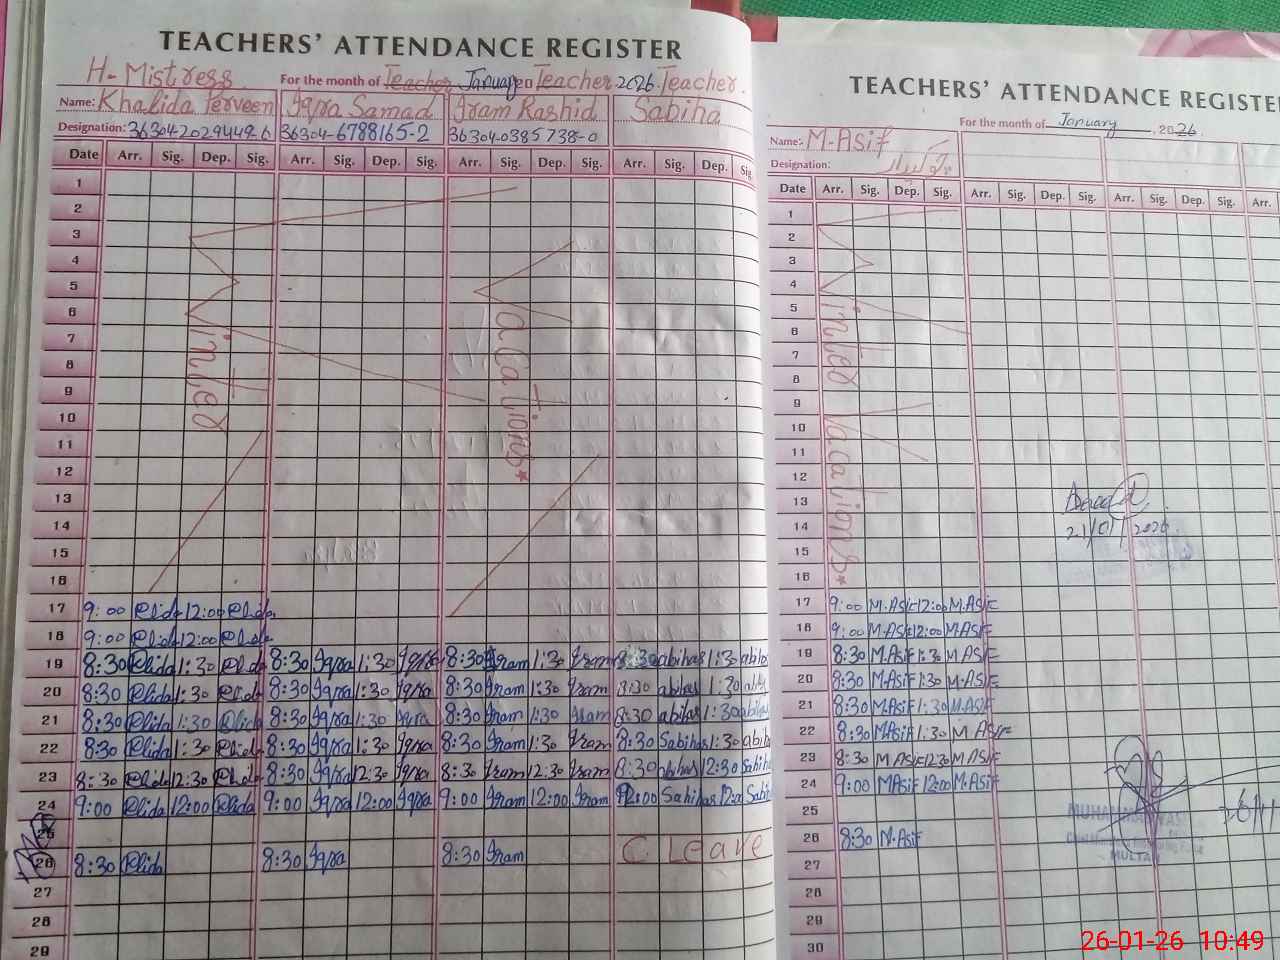 TEACHERS' ATTENDANCE REGISTER
H-Mistress For the month of Teacher January Teacher 2026 Teacher
Name: Khalida Perveen Iqra Samad Iram Rashid Sabiha
Designation: 36304-6788165-2 36304-0385738-0
Date Arr. Sig. Dep. Sig. Arr. Sig. Dep. Sig. Arr. Sig. Dep. Sig. Arr. Sig. Dep. Sig.
1
2
3
4
5
6
7
8
9
10
11
12
13
14
15
16
Vacations*
17 9:00 12:00
18 9:00 12:00
19 8:30 1:30 8:30 Iqra 1:30 Iqra 8:30 Iram 1:30 Iram 8:30 abiha 1:30
20 8:30 1:30 8:30 Iqra 1:30 Iqra 8:30 Iram 1:30 Iram 8:30 abiha 1:30
21 8:30 1:30 8:30 Iqra 1:30 Iqra 8:30 Iram 1:30 Iram 8:30 abiha 1:30
22 8:30 1:30 8:30 Iqra 1:30 Iqra 8:30 Iram 1:30 Iram 8:30 Sabiha 1:30
23 8:30 12:30 8:30 Iqra 12:30 Iqra 8:30 Iram 12:30 Iram 8:30 abiha 12:30
24 9:00 12:00 9:00 Iqra 12:00 Iqra 9:00 Iram 12:00 Iram Sabiha
25
26 8:30 8:30 Iqra 8:30 Iram C. Leave
27
28
29
TEACHERS' ATTENDANCE REGISTE
For the month of January, 2026.
Name: M-Asif
Designation:
Date Arr. Sig. Dep. Sig. Arr. Sig. Dep. Sig. Arr. Sig. Dep. Sig. Arr.
1
2
3
4
5
6
7
8
9
10
11
12
13
14
15
16
Vacations*
21/01/2026
17 9:00 M.Asif 12:00 M.Asif
18 9:00 M.Asif 12:00 M.Asif
19 8:30 M.Asif 1:30 M.Asif
20 8:30 M.Asif 1:30 M.Asif
21 8:30 M.Asif 1:30 M.Asif
22 8:30 M.Asif 1:30 M.Asif
23 8:30 M.Asif 12:30 M.Asif
24 9:00 M.Asif 12:00 M.Asif
25
26 8:30 M.Asif
27
28
29
30
MULTAN
26-01-26 10:49